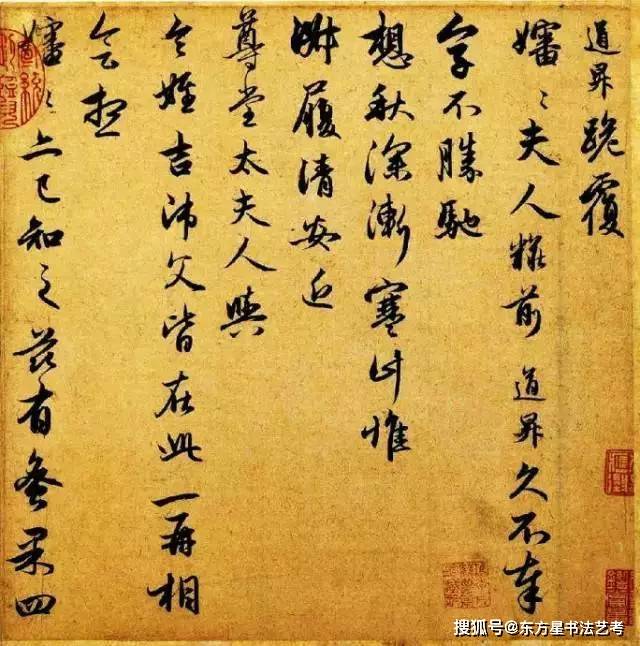 道昇跪覆
嬸〻夫人糚前道昇久不奉
字不勝馳
想秋深漸寒計惟
淑履清安近
尊堂太夫人與
令姪吉師父皆在此一再相
會想
嬸〻亦已知之茲有蜜果四
搜狐号@东方星书法艺考